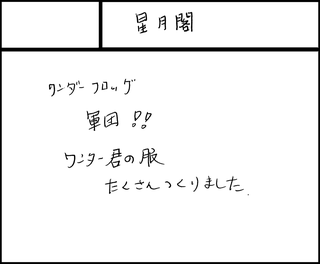 星月閣
ワンダーフロッグ
軍団!!
ワンダー君の服
たくさんつくりました.